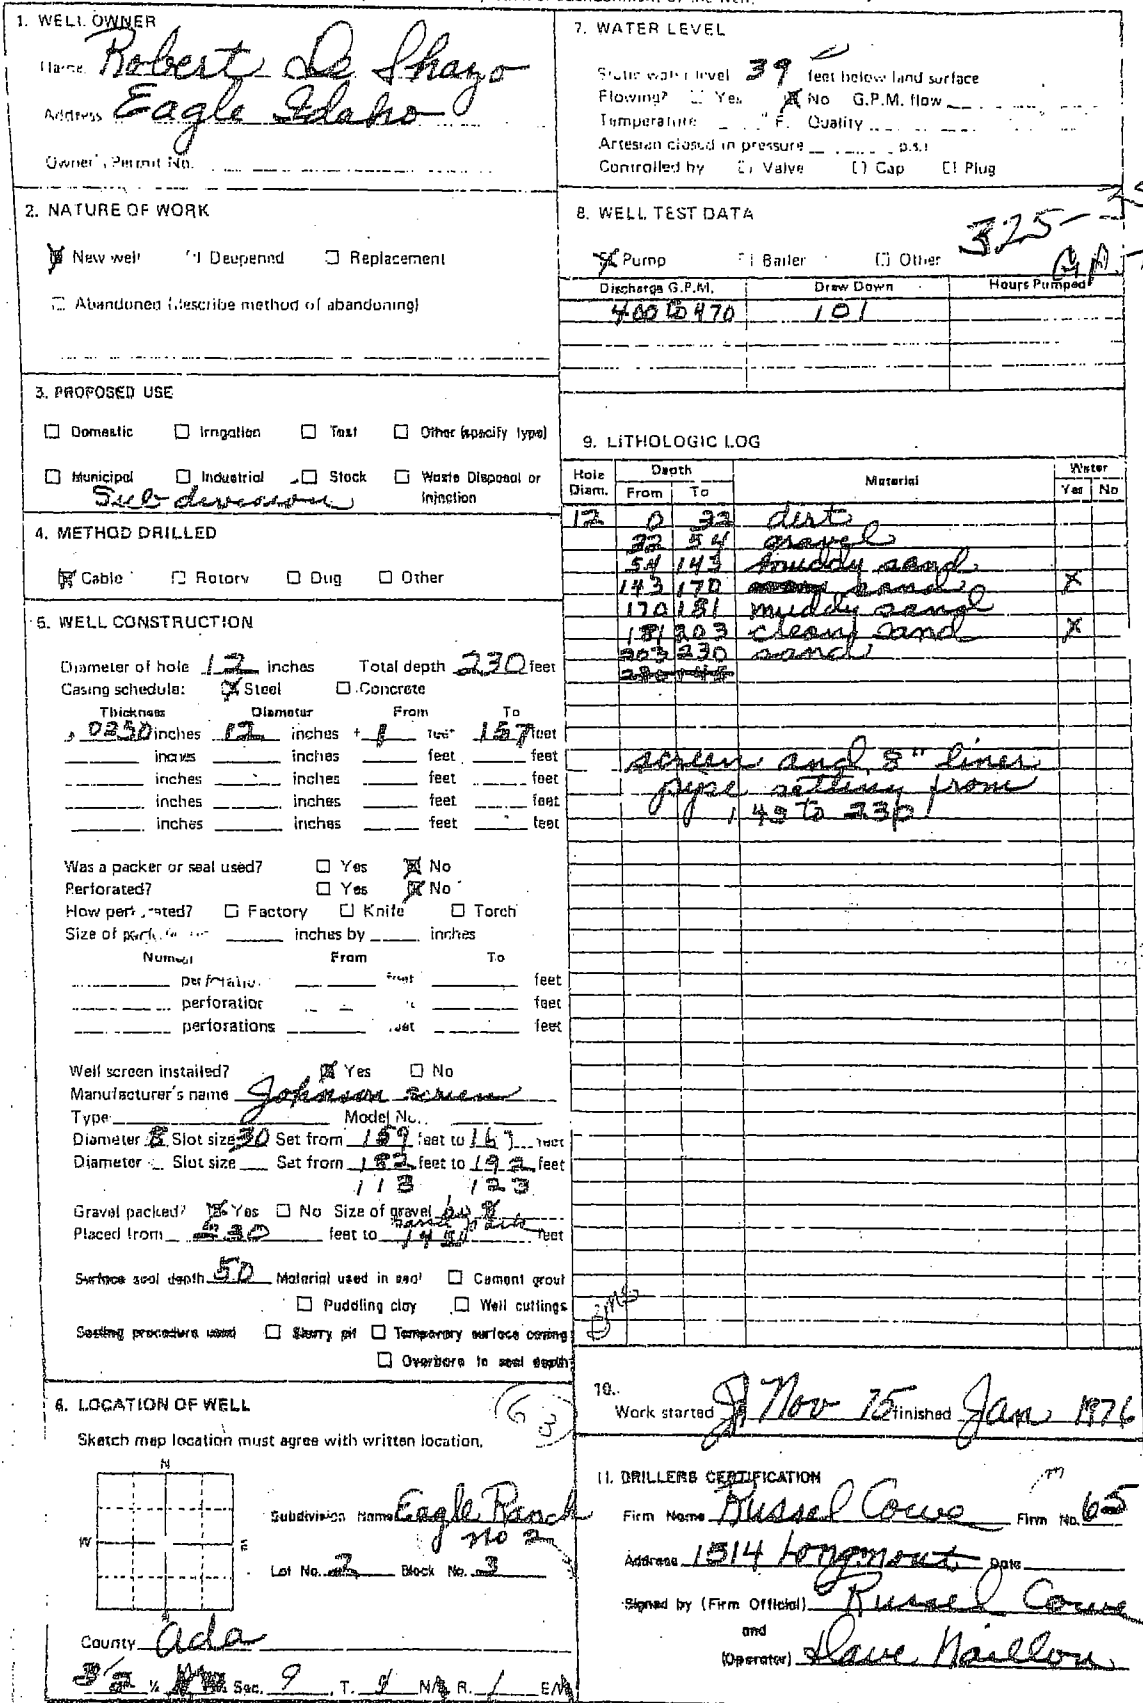 1. WELL OWNER
Name Robert De Shazo
Address Eagle Idaho
Owner's Permit No.
2. NATURE OF WORK
New well Deepened Replacement
Abandoned (describe method of abandoning)
3. PROPOSED USE
Domestic Irrigation Test Other (specify type)
Municipal Industrial Stock Waste Disposal or Injection
Sub division
4. METHOD DRILLED
Cable Rotory Dug Other
5. WELL CONSTRUCTION
Diameter of hole 12 inches Total depth 230 feet
Casing schedule: Steel Concrete
Thickness Diameter From To
.0250 inches 12 inches + 1 feet 157 feet
inches inches feet feet
inches inches feet feet
inches inches feet feet
inches inches feet feet
Was a packer or seal used? Yes No
Perforated? Yes No
How perforated? Factory Knife Torch
Size of inches by inches
Number From To
perforations feet feet
perforation feet
perforations feet feet
Well screen installed? Yes No
Manufacturer's name Johnson screen
Type Model No.
Diameter 8 Slot size 30 Set from 159 feet to feet
Diameter Slot size Set from 182 feet to 192 feet
113 123
Gravel packed? Yes No Size of gravel
Placed from 230 feet to feet
Surface seal depth 50 Material used in seal Cement grout
Puddling clay Well cuttings
Sealing procedure used Slurry pit Temporary surface casing
Overbore to seal depth
6. LOCATION OF WELL
63
Sketch map location must agree with written location.
N
W E
S
Subdivision Name Eagle Ranch
no 2
Lot No. 2 Block No. 3
County Ada
¼ Sec. 9, T. 4 N R. 1 E
7. WATER LEVEL
Static water level 39 feet below land surface
Flowing? Yes No G.P.M. flow
Temperature °F. Quality
Artesian closed in pressure p.s.i
Controlled by Valve Cap Plug
8. WELL TEST DATA
325-
Pump Bailer Other
Discharge G.P.M. Draw Down Hours Pumped
400 to 470 101
9. LITHOLOGIC LOG
Hole Diam. Depth Material Water
From To Yes No
12 0 32 dirt
32 54 gravel
54 143 muddy sand
143 170 sand X
170 181 muddy sand
181 203 clean sand X
203 230 sand
screen and 8" liner
pipe setting from
143 to 230
10.
Work started Nov 75 finished Jan 1976
11. DRILLERS CERTIFICATION
Firm Name Russel Cowe Firm No. 65
Address 1514 Longmont Date
Signed by (Firm Official) Russel Cowe
and
(Operator) Dave Naillon